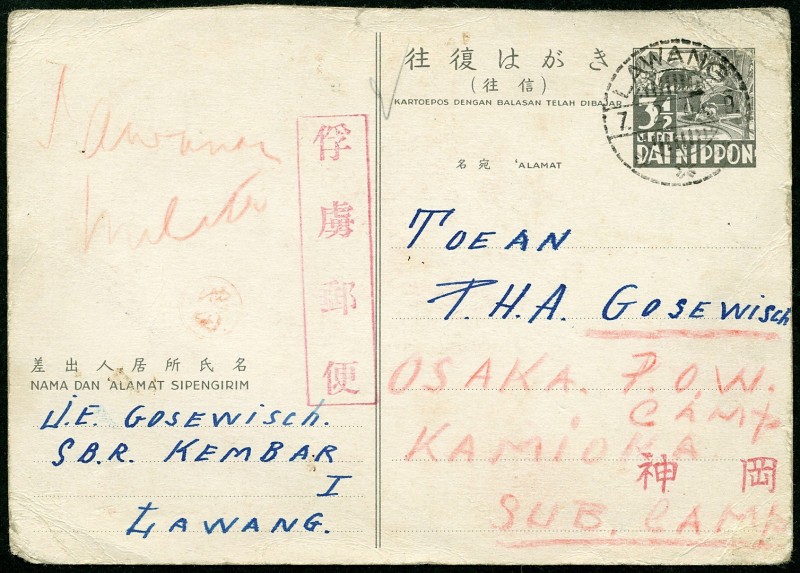 往復はがき
(往信)
KARTOEPOS DENGAN BALASAN TELAH DIBAJAR
名宛 'ALAMAT
LAWANG
7.
3½
SEN
DAI NIPPON
TOEAN
P.H.A. GOSEWISCH
OSAKA. P.O.W.
CAMP
KAMIOKA.
神岡
SUB. CAMP
俘虜郵便
差出人居所氏名
NAMA DAN 'ALAMAT SIPENGIRIM
J.E. GOSEWISCH.
SB.R. KEMBAR
I
LAWANG.